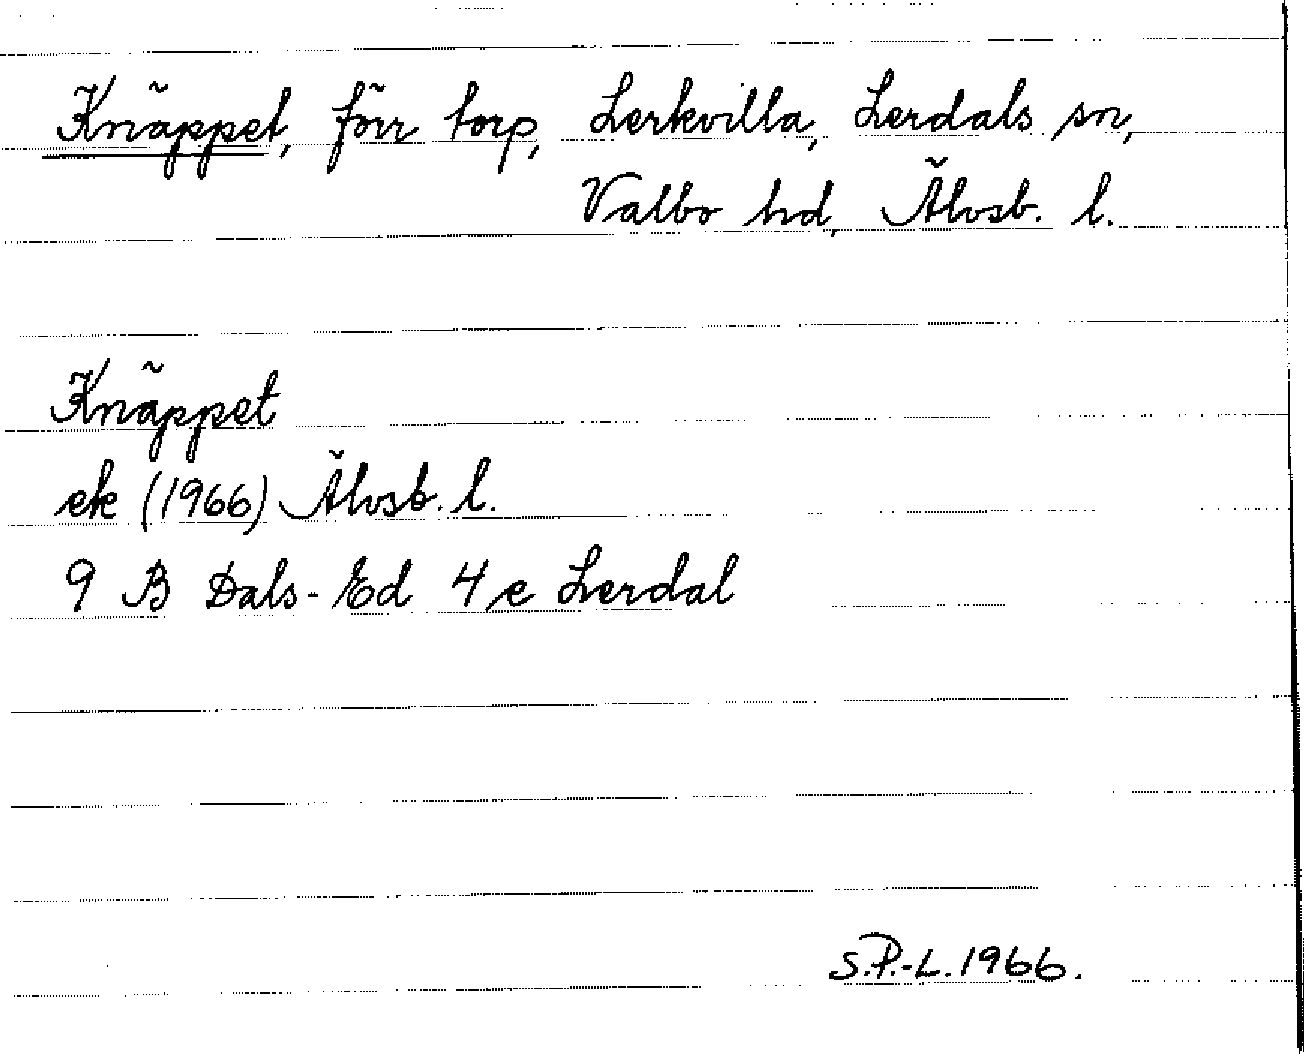 Knäppet, förr torp, Lerkvilla, Lerdals sn,
Valbo hd, Älvsb. l.
Knäppet
ek (1966) Älvsb. l.
9 B Dals-Ed 4 e Lerdal
S.P.-L. 1966.